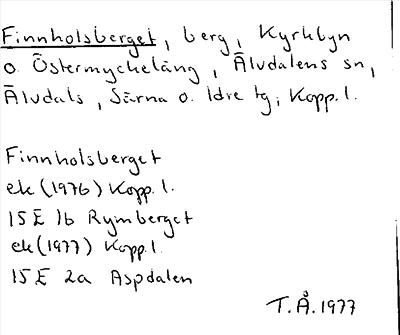 Finnholsberget, berg, Kyrkbyn
o. Östermyckeläng, Älvdalens sn,
Älvdals, Särna o. Idre tg; Kopp. l.
Finnholsberget
ek (1976) Kopp. l.
15 E 1b Rymberget
ek (1977) Kopp. l.
15 E 2a Aspdalen
T.Å. 1977